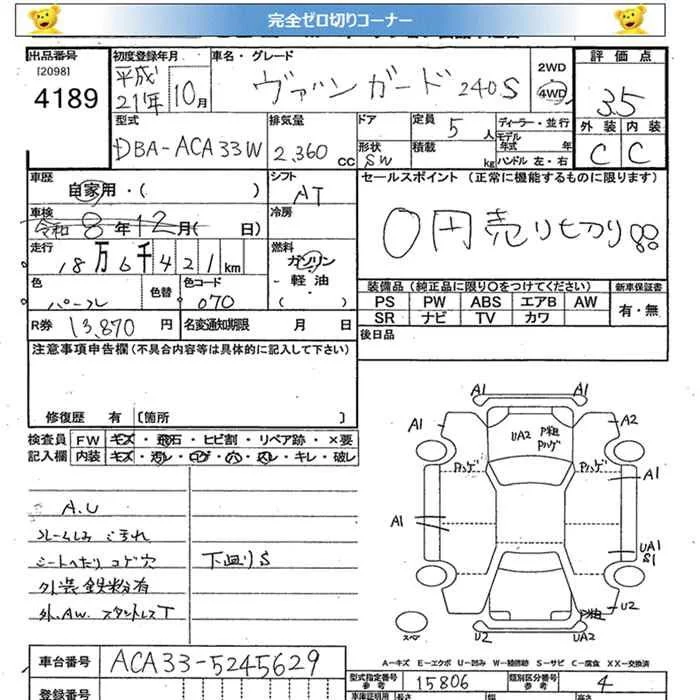 完全ゼロ切りコーナー
出品番号
[2098]
4189
初度登録年月
平成
21年 10月
車名・グレード
ヴァンガード 240S
2WD
4WD
評価点
3.5
外装 内装
C C
型式
DBA-ACA33W
排気量
2,360 cc
ドア
形状
SW
定員
5 人
積載
kg
ディーラー・並行
モデル
年式 年
ハンドル 左・右
車歴
自家用・( )
シフト
AT
セールスポイント (正常に機能するものに限ります)
0円売り切り
車検
令和8年12月( 日)
冷房
走行
18万6千421km
燃料
ガソリン
・軽油
( )
色
パール
色替
色コード
070
装備品(純正品に限り○をつけてください)
PS PW ABS エアB AW
SR ナビ TV カワ
新車保証書
有・無
R券 13,870 円
名変通知期限 月 日
後日品
注意事項申告欄(不具合内容等は具体的に記入して下さい)
修復歴 有 [箇所 ]
検査員
記入欄
FW キズ・飛石・ヒビ割・リペア跡・×要
内装 キズ・汚レ・コゲ・穴・スレ・キレ・破レ
A.U
シートへたり コゲ穴
外装鉄粉有
外、AW、スタントレスT
下廻りS
A1 A1
A1 A2
UA2 P粗
Pハゲ
Pハゲ Pハゲ
A1
A1
UA1
S1
P粗 U2
スペア
U2 UA2
A-キズ E-エクボ U-凹み W-補修跡 S-サビ C-腐食 XX-交換済
車台番号 ACA33-5245629
型式指定番号
参考
15806
類別区分番号
参考
4
登録番号
車庫証明用
参考
長さ 幅 高さ